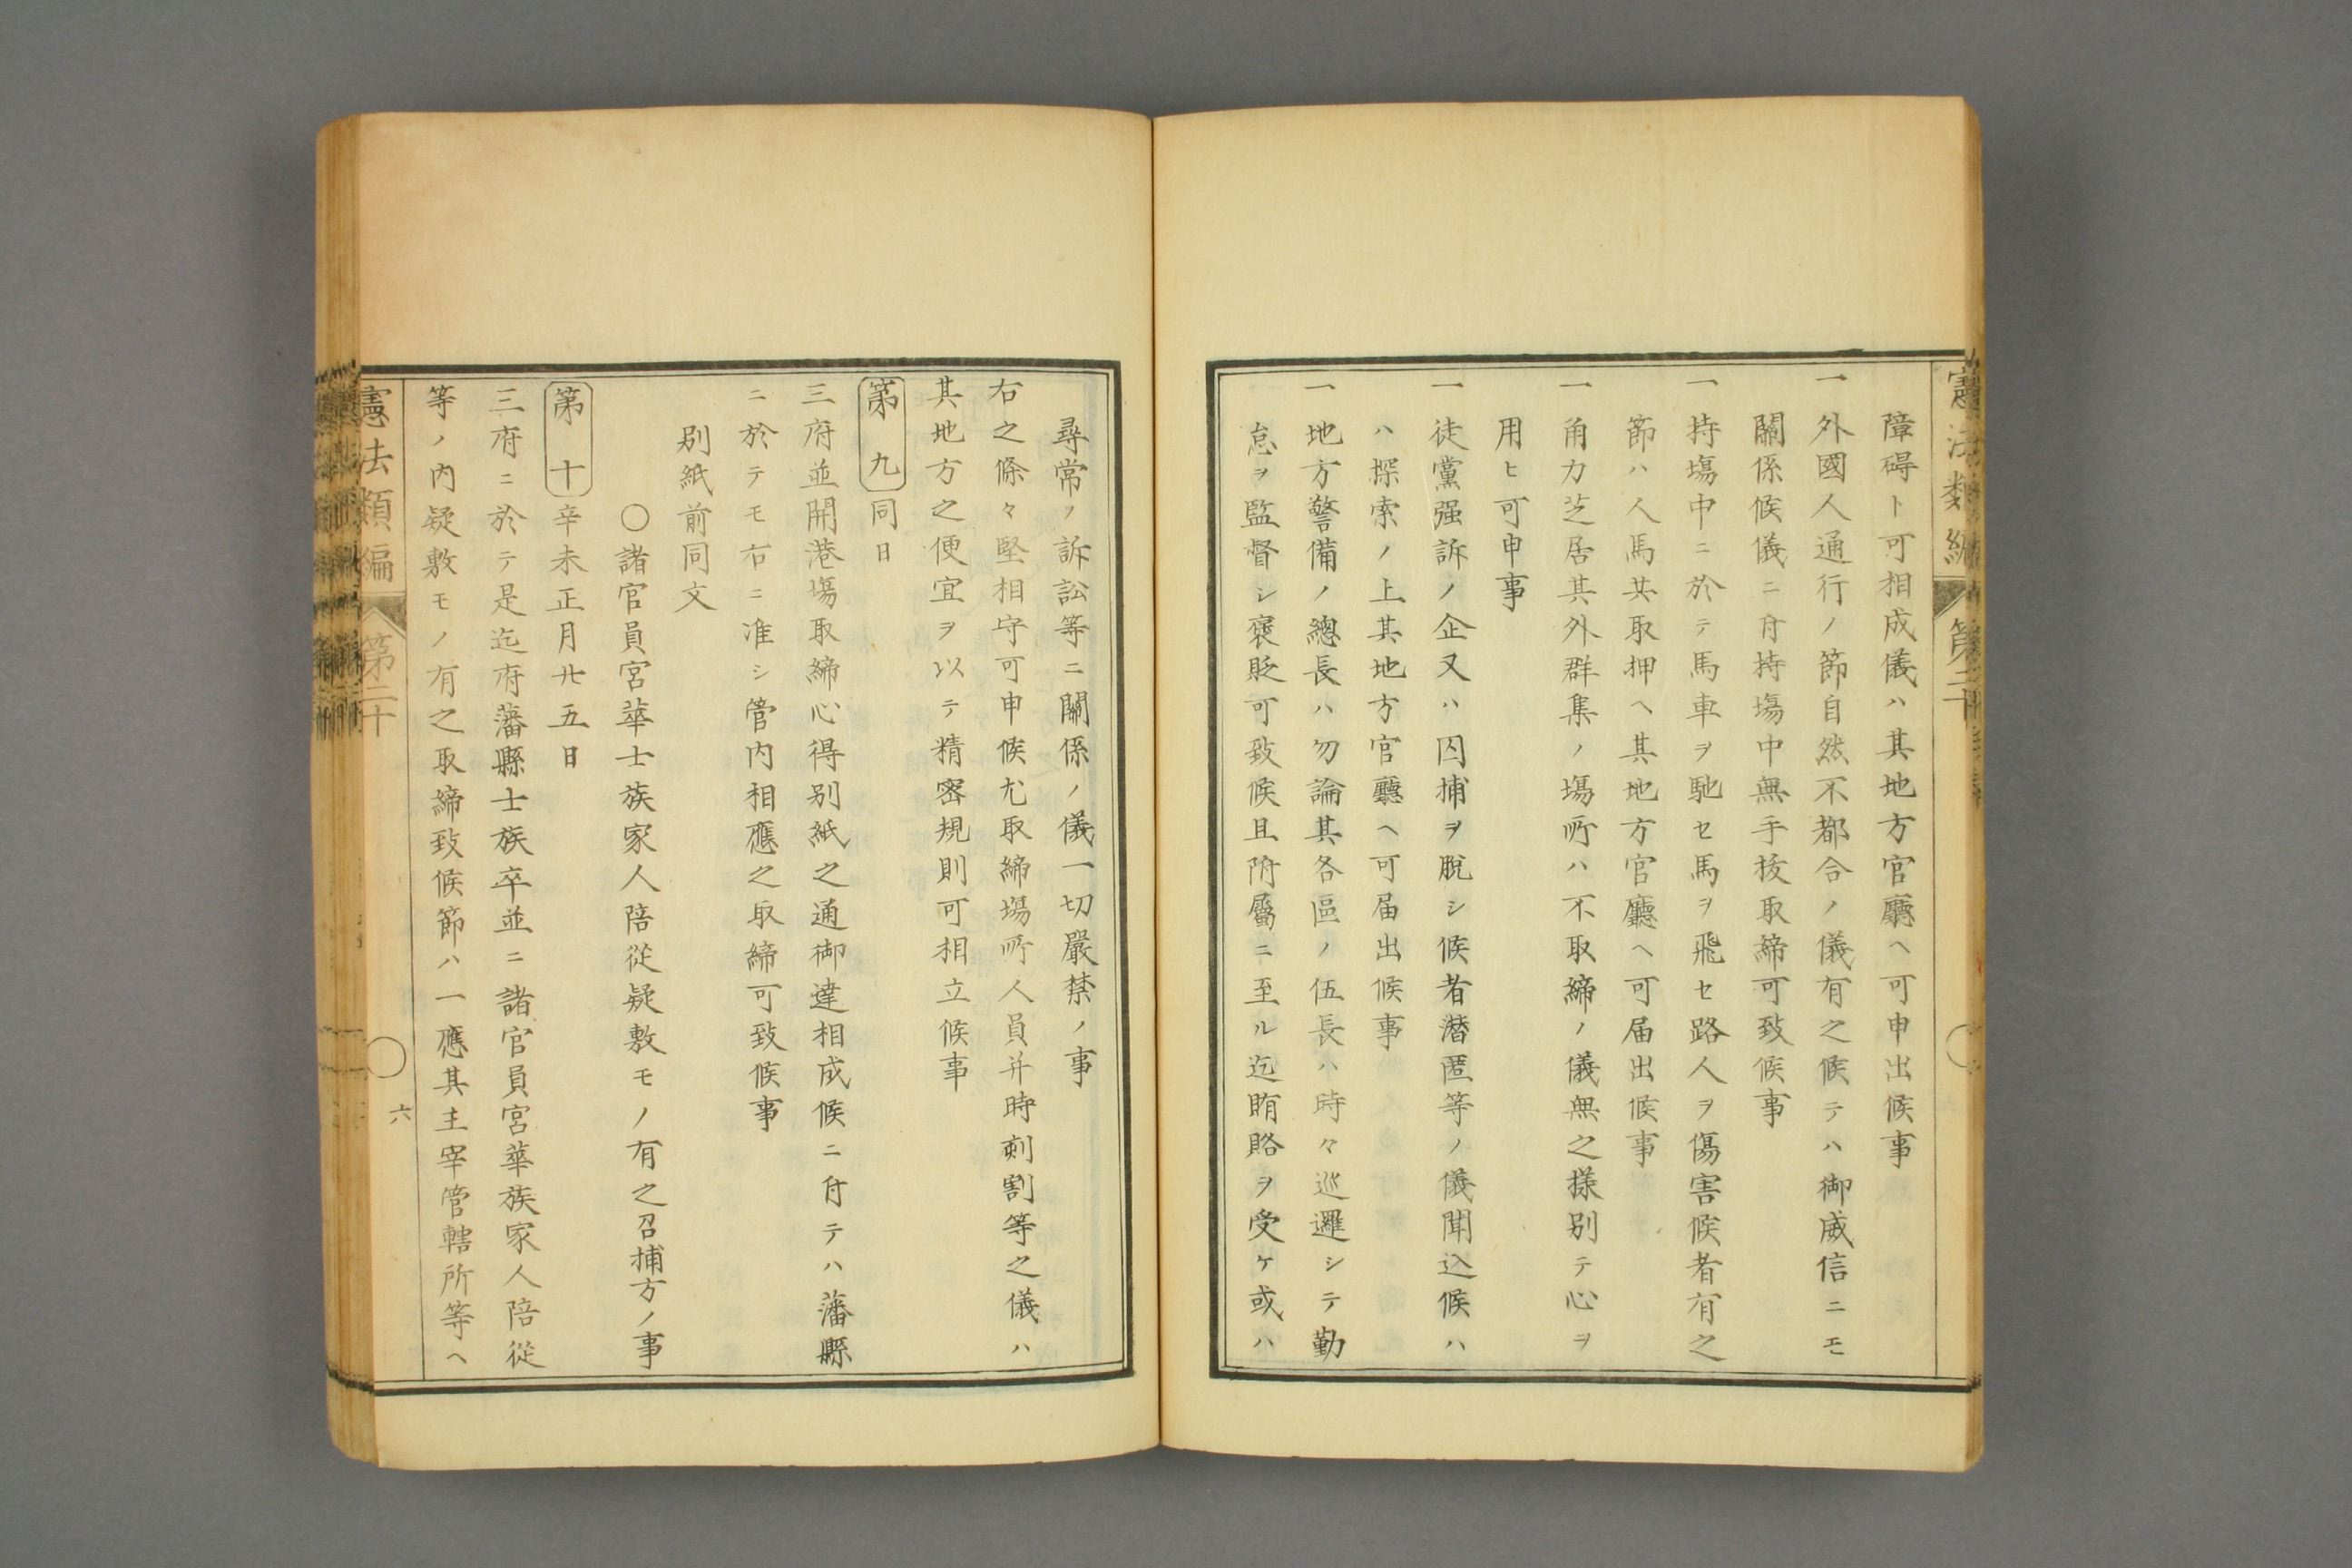 憲法類編 第二十
障碍ト可相成儀ハ其地方官廳ヘ可申出候事
一外國人通行ノ節自然不都合ノ儀有之候テハ御威信ニモ
關係候儀ニ付持塲中無手拔取締可致候事
一持塲中ニ於テ馬車ヲ馳セ馬ヲ飛セ路人ヲ傷害候者有之
節ハ人馬共取押ヘ其地方官廳ヘ可届出候事
一角力芝居其外群集ノ塲所ハ不取締ノ儀無之様别テ心ヲ
用ヒ可申事
一徒黨强訴ノ企又ハ囚捕ヲ脱シ候者潜匿等ノ儀聞込候ハ
ハ探索ノ上其地方官廳ヘ可届出候事
一地方警備ノ總長ハ勿論其各區ノ伍長ハ時々巡邏シテ勤
怠ヲ監督シ褒貶可致候且附屬ニ至ル迄賄賂ヲ受ケ或ハ
尋常ノ訴訟等ニ關係ノ儀一切嚴禁ノ事
右之條々堅相守可申候尤取締塲所人員并時刻割等之儀ハ
其地方之便宜ヲ以テ精密規則可相立候事
第九 同日
三府並開港塲取締心得别紙之通御達相成候ニ付テハ藩縣
ニ於テモ右ニ准シ管内相應之取締可致候事
别紙前同文
〇諸官員宮華士族家人陪從疑敷モノ有之召捕方ノ事
第十 辛未正月廿五日
三府ニ於テ是迄府藩縣士族卒並ニ諸官員宮華族家人陪從
等ノ内疑敷モノ有之取締致候節ハ一應其主宰管轄所等ヘ
憲法類編 第二十 〇 六